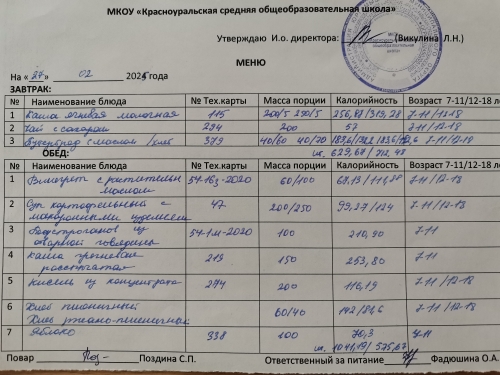 МКОУ «Красноуральская средняя общеобразовательная школа»
Утверждаю И.о. директора: (Викулина Л.Н.)
МЕНЮ
На « 27 » 02 2025 года
ЗАВТРАК:
№ Наименование блюда № Тех.карты Масса порции Калорийность Возраст 7-11/12-18 ле
1 Каша ячневая молочная 115 200/5 250/5 256,82/319,28 7-11/12-18
2 Чай с сахаром 294 200 57 7-11/12-18
3 Бутерброд с маслом /хлеб 379 40/60 40/70 7-11/12-18
ОБЕД:
№ Наименование блюда № Тех.карты Масса порции Калорийность Возраст 7-11/12-18 ле
1 Винегрет с растительн маслом 54-16з-2020 60/100 7-11/12-18
2 Суп картофельный с макаронными изделиями 47 200/250 99,27/124 7-11/12-18
3 Бефстроганов из отварной говядины 54-1м-2020 100 210,90 7-11
4 Каша гречневая рассыпчатая 219 150 253,80 7-11
5 Кисель из концентрата 274 200 116,19 7-11/12-18
6 Хлеб пшеничный
Хлеб ржано-пшеничный 60/40 142/81,6 7-11/12-18
7 Яблоко 338 100 70,3 7-11
1041,19/575,67
Повар Поздина С.П. Ответственный за питание Фадюшина О.А.